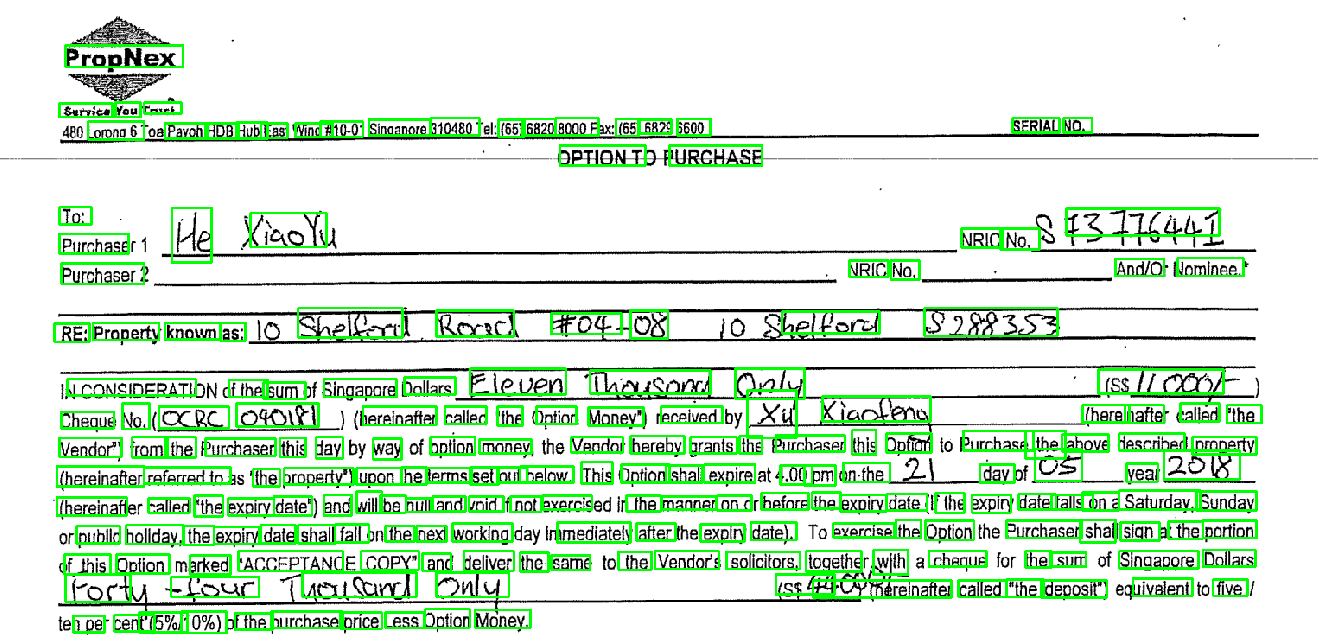 PropNex
Service You Trust
480 Lorong 6 Toa Payoh HDB Hub East Wing #10-01 Singapore 310480 Tel: (65) 6820 8000 Fax: (65) 6829 6600
SERIAL NO.
OPTION TO PURCHASE
To:
Purchaser 1 He XiaoYu NRIC No. S 7377644I
Purchaser 2 NRIC No. And/Or Nominee.*
RE: Property known as: 10 Shelford Road #04-08 10 Shelford S288353
IN CONSIDERATION of the sum of Singapore Dollars Eleven Thousand Only (S$ 11,000/- )
Cheque No. (OCBC 040181 ) (hereinafter called the "Option Money") received by Xu Xiaofeng (hereinafter called "the
Vendor") from the Purchaser this day by way of option money, the Vendor hereby grants the Purchaser this Option to Purchase the above described property
(hereinafter referred to as "the property") upon the terms set out below. This Option shall expire at 4.00 pm on the 21 day of 05 year 2018
(hereinafter called "the expiry date") and will be null and void if not exercised in the manner on or before the expiry date (If the expiry date falls on a Saturday, Sunday
or public holiday, the expiry date shall fall on the next working day immediately after the expiry date). To exercise the Option the Purchaser shall sign at the portion
of this Option marked "ACCEPTANCE COPY" and deliver the same to the Vendor's solicitors, together with a cheque for the sum of Singapore Dollars
Forty-four Thousand Only (S$ 44,000/- (hereinafter called "the deposit") equivalent to five /
ten per cent*(5%/10%) of the purchase price Less Option Money.